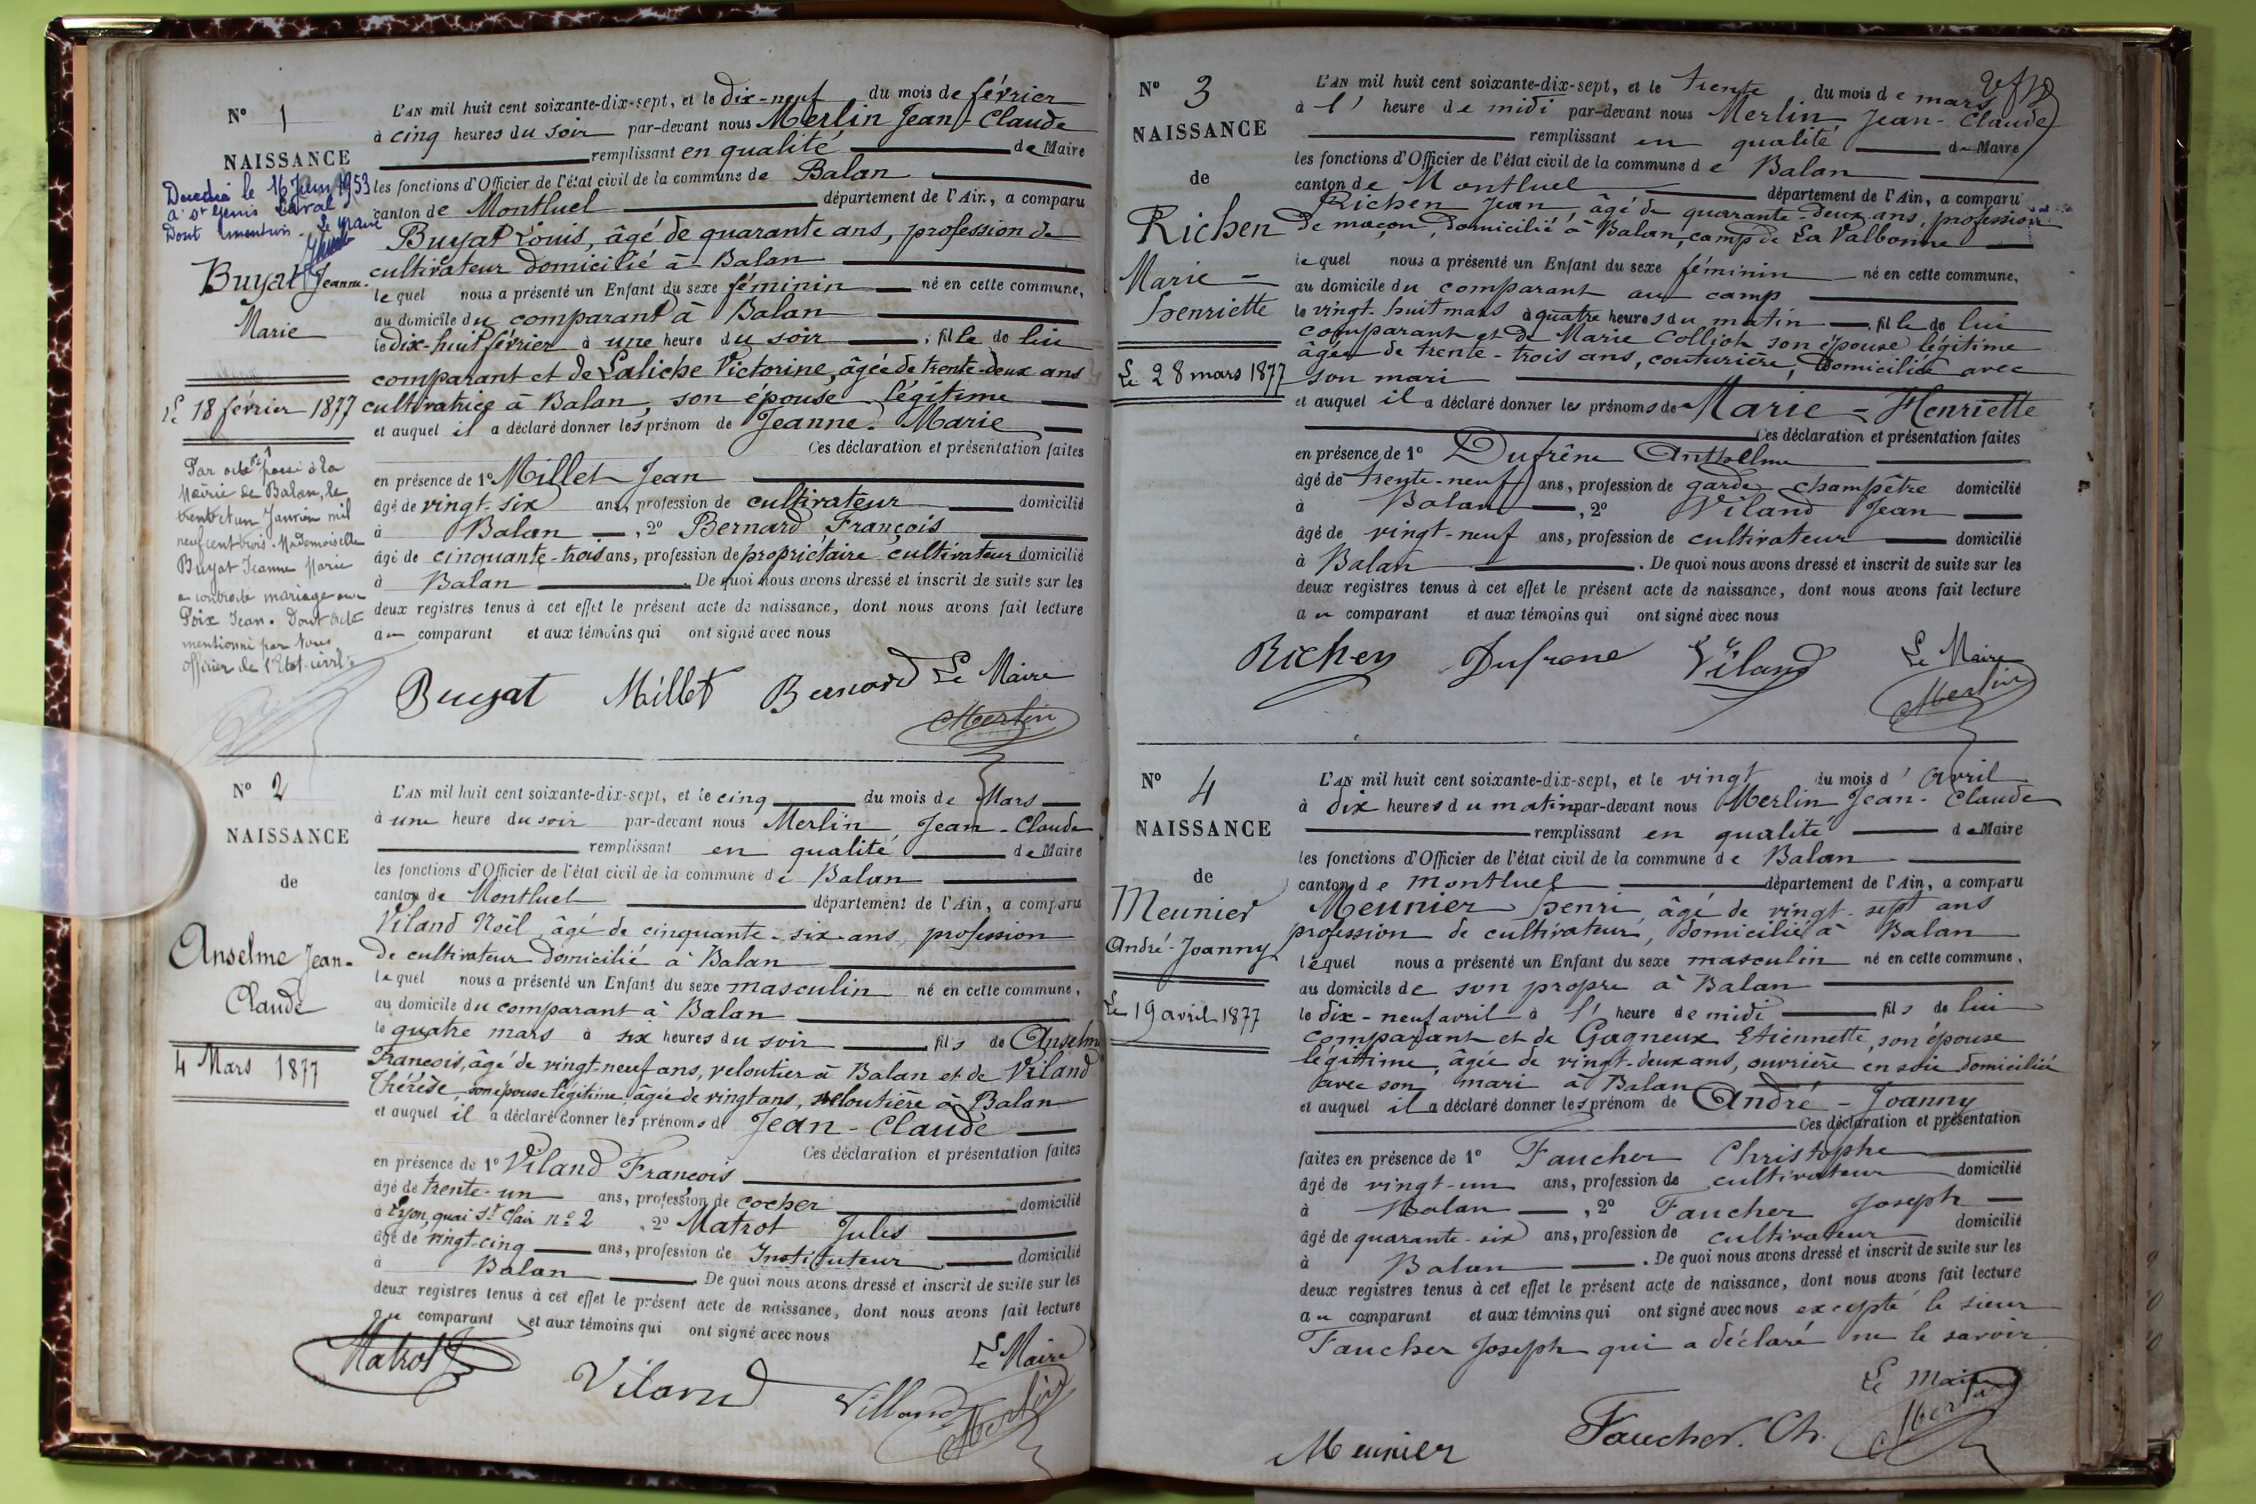 N° 1
NAISSANCE
Décédée le 16 Juin 1953
à St Genis Laval
Dont mention. Le Maire
Buyat Jeanne-
Marie
Le 18 février 1877
Par acte passé à la
Mairie de Balan, le
trente et un Janvier mil
neuf cent trois. Mademoiselle
Buyat Jeanne Marie
a contracté mariage avec
Poix Jean. Dont acte
mentionné par Nous
officier de l'Etat-civil
L'AN mil huit cent soixante-dix-sept, et le dix-neuf du mois de février
à cinq heures du soir par-devant nous Merlin Jean-Claude
remplissant en qualité de Maire
les fonctions d'Officier de l'état civil de la commune de Balan
canton de Montluel département de l'Ain, a comparu
Buyat Louis, âgé de quarante ans, profession de
cultivateur domicilié à Balan
lequel nous a présenté un Enfant du sexe féminin né en cette commune,
au domicile du comparant à Balan
le dix-huit février à une heure du soir ; fille de lui
comparant et de Laliche Victorine, âgée de trente-deux ans
cultivatrice à Balan, son épouse légitime
et auquel il a déclaré donner les prénom de Jeanne-Marie
Ces déclaration et présentation faites
en présence de 1° Millet Jean
âgé de vingt-six ans, profession de cultivateur domicilié
à Balan , 2° Bernard François
âgé de cinquante-trois ans, profession de propriétaire cultivateur domicilié
à Balan . De quoi nous avons dressé et inscrit de suite sur les
deux registres tenus à cet effet le présent acte de naissance, dont nous avons fait lecture
au comparant et aux témoins qui ont signé avec nous
Buyat Millet Bernard Le Maire
Merlin
N° 2
NAISSANCE
de
Anselme Jean-
Claude
4 Mars 1877
L'AN mil huit cent soixante-dix-sept, et le cinq du mois de Mars
à une heure du soir par-devant nous Merlin, Jean-Claude
remplissant en qualité de Maire
les fonctions d'Officier de l'état civil de la commune de Balan
canton de Montluel département de l'Ain, a comparu
Viland Noël, âgé de cinquante-six ans, profession
de cultivateur domicilié à Balan
lequel nous a présenté un Enfant du sexe masculin né en cette commune,
au domicile du comparant à Balan
le quatre mars à six heures du soir fils de Anselme
Francois, âgé de vingt-neuf ans, veloutier à Balan et de Viland
Thérèse, son épouse légitime âgée de vingt ans, veloutière à Balan
et auquel il a déclaré donner les prénoms de Jean-Claude
Ces déclaration et présentation faites
en présence de 1° Viland François
âgé de trente-un ans, profession de cocher domicilié
à Lyon, quai St Clair n° 2 , 2° Matrot Jules
âgé de vingt-cinq ans, profession de Instituteur domicilié
à Balan . De quoi nous avons dressé et inscrit de suite sur les
deux registres tenus à cet effet le présent acte de naissance, dont nous avons fait lecture
au comparant et aux témoins qui ont signé avec nous
Matrot J Viland Villand Le Maire
Merlin
N° 3
NAISSANCE
de
Richen
Marie-
Henriette
Le 28 mars 1877
L'AN mil huit cent soixante-dix-sept, et le trente du mois de mars
à l' heure de midi par-devant nous Merlin Jean-Claude
remplissant en qualité de Maire
les fonctions d'Officier de l'état civil de la commune de Balan
canton de Montluel département de l'Ain, a comparu
Richen Jean, âgé de quarante-deux ans, profession
de maçon, domicilié à Balan, camp de La Valbonne
lequel nous a présenté un Enfant du sexe féminin né en cette commune,
au domicile du comparant au camp
le vingt-huit mars à quatre heures du matin , fille de lui
comparant et de Marie Colliot son épouse légitime
âgée de trente-trois ans, couturière, domiciliée avec
son mari
et auquel il a déclaré donner les prénoms de Marie-Henriette
Ces déclaration et présentation faites
en présence de 1° Dufrêne Anthelme
âgé de trente-neuf ans, profession de garde champêtre domicilié
à Balan , 2° Viland Jean
âgé de vingt-neuf ans, profession de cultivateur domicilié
à Balan . De quoi nous avons dressé et inscrit de suite sur les
deux registres tenus à cet effet le présent acte de naissance, dont nous avons fait lecture
au comparant et aux témoins qui ont signé avec nous
Richen Dufrene Viland Le Maire
Merlin
N° 4
NAISSANCE
de
Meunier
André-Joanny
Le 19 avril 1877
L'AN mil huit cent soixante-dix-sept, et le vingt du mois d' Avril
à dix heures du matin par-devant nous Merlin Jean-Claude
remplissant en qualité de Maire
les fonctions d'Officier de l'état civil de la commune de Balan
canton de Montluel département de l'Ain, a comparu
Meunier henri, âgé de vingt-sept ans
profession de cultivateur, domicilié à Balan
lequel nous a présenté un Enfant du sexe masculin né en cette commune,
au domicile de son propre à Balan
le dix-neuf avril à l' heure de midi fils de lui
comparant et de Gagneux Etiennette, son épouse
légitime, âgée de vingt-deux ans, ouvrière en soie domiciliée
avec son mari à Balan
et auquel il a déclaré donner les prénom de André-Joanny
Ces déclaration et présentation
faites en présence de 1° Faucher Christophe
âgé de vingt-un ans, profession de cultivateur domicilié
à Balan , 2° Faucher Joseph
âgé de quarante-six ans, profession de cultivateur domicilié
à Balan . De quoi nous avons dressé et inscrit de suite sur les
deux registres tenus à cet effet le présent acte de naissance, dont nous avons fait lecture
au comparant et aux témoins qui ont signé avec nous excepté le sieur
Faucher Joseph qui a déclaré ne le savoir
Le Maire
Meunier Faucher. Ch. Merlin